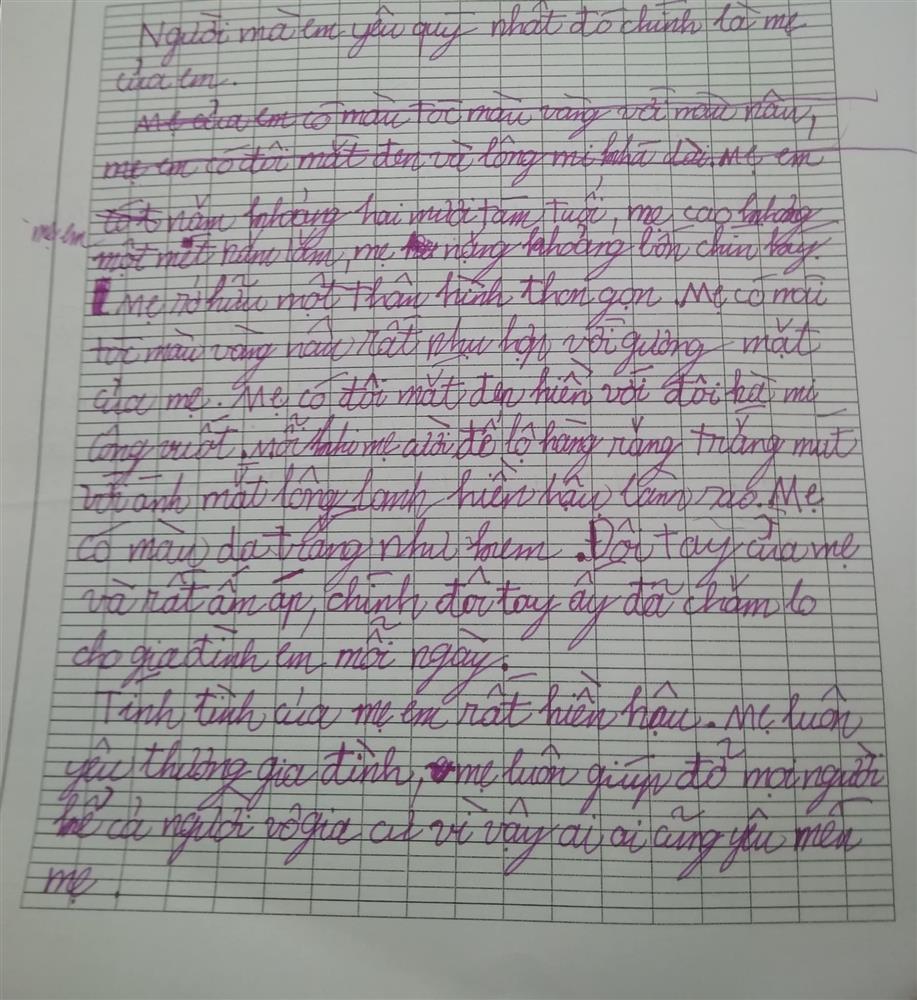 Người mà em yêu quý nhất đó chính là mẹ
của em.
Mẹ của em có màu tóc màu vàng với màu nâu,
mẹ em có đôi mắt đen và lông mi khá dài. Mẹ em
năm khoảng hai mươi tám tuổi, mẹ cao khoảng
mẹ em
một mét năm lăm, mẹ nặng khoảng bốn chín kay.
Mẹ sở hữu một thân hình thon gọn. Mẹ có mái
tóc màu vàng nâu rất như hợp với gương mặt
của mẹ. Mẹ có đôi mắt đen hiền với đôi hà mi
công vuốt. Mỗi khi mẹ cười để lộ hàng răng trắng mút
với ánh mắt lông lanh hiền hậu làm sao. Mẹ
có màu da trắng như kem. Đôi tay của mẹ
và rất ấm áp, chính đôi tay ấy đã chăm lo
cho gia đình em mỗi ngày.
Tính tình của mẹ em rất hiền hậu. Mẹ luôn
yêu thương gia đình, mẹ luôn giúp đỡ mọi người
kể cả người vô gia cư vì vậy ai ai cũng yêu mến
mẹ.